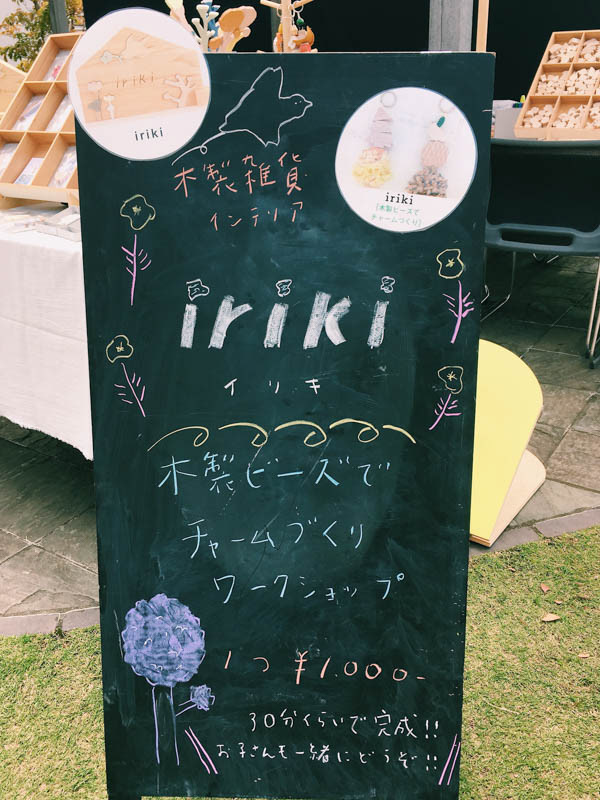 iriki
iriki
iriki
「木製ビーズで
チャームづくり」
木製雑貨
インテリア
iriki
イリキ
木製ビーズで
チャームづくり
ワークショップ
1つ ¥1.000-
30分くらいで完成!!
お子さんも一緒にどうぞ!!